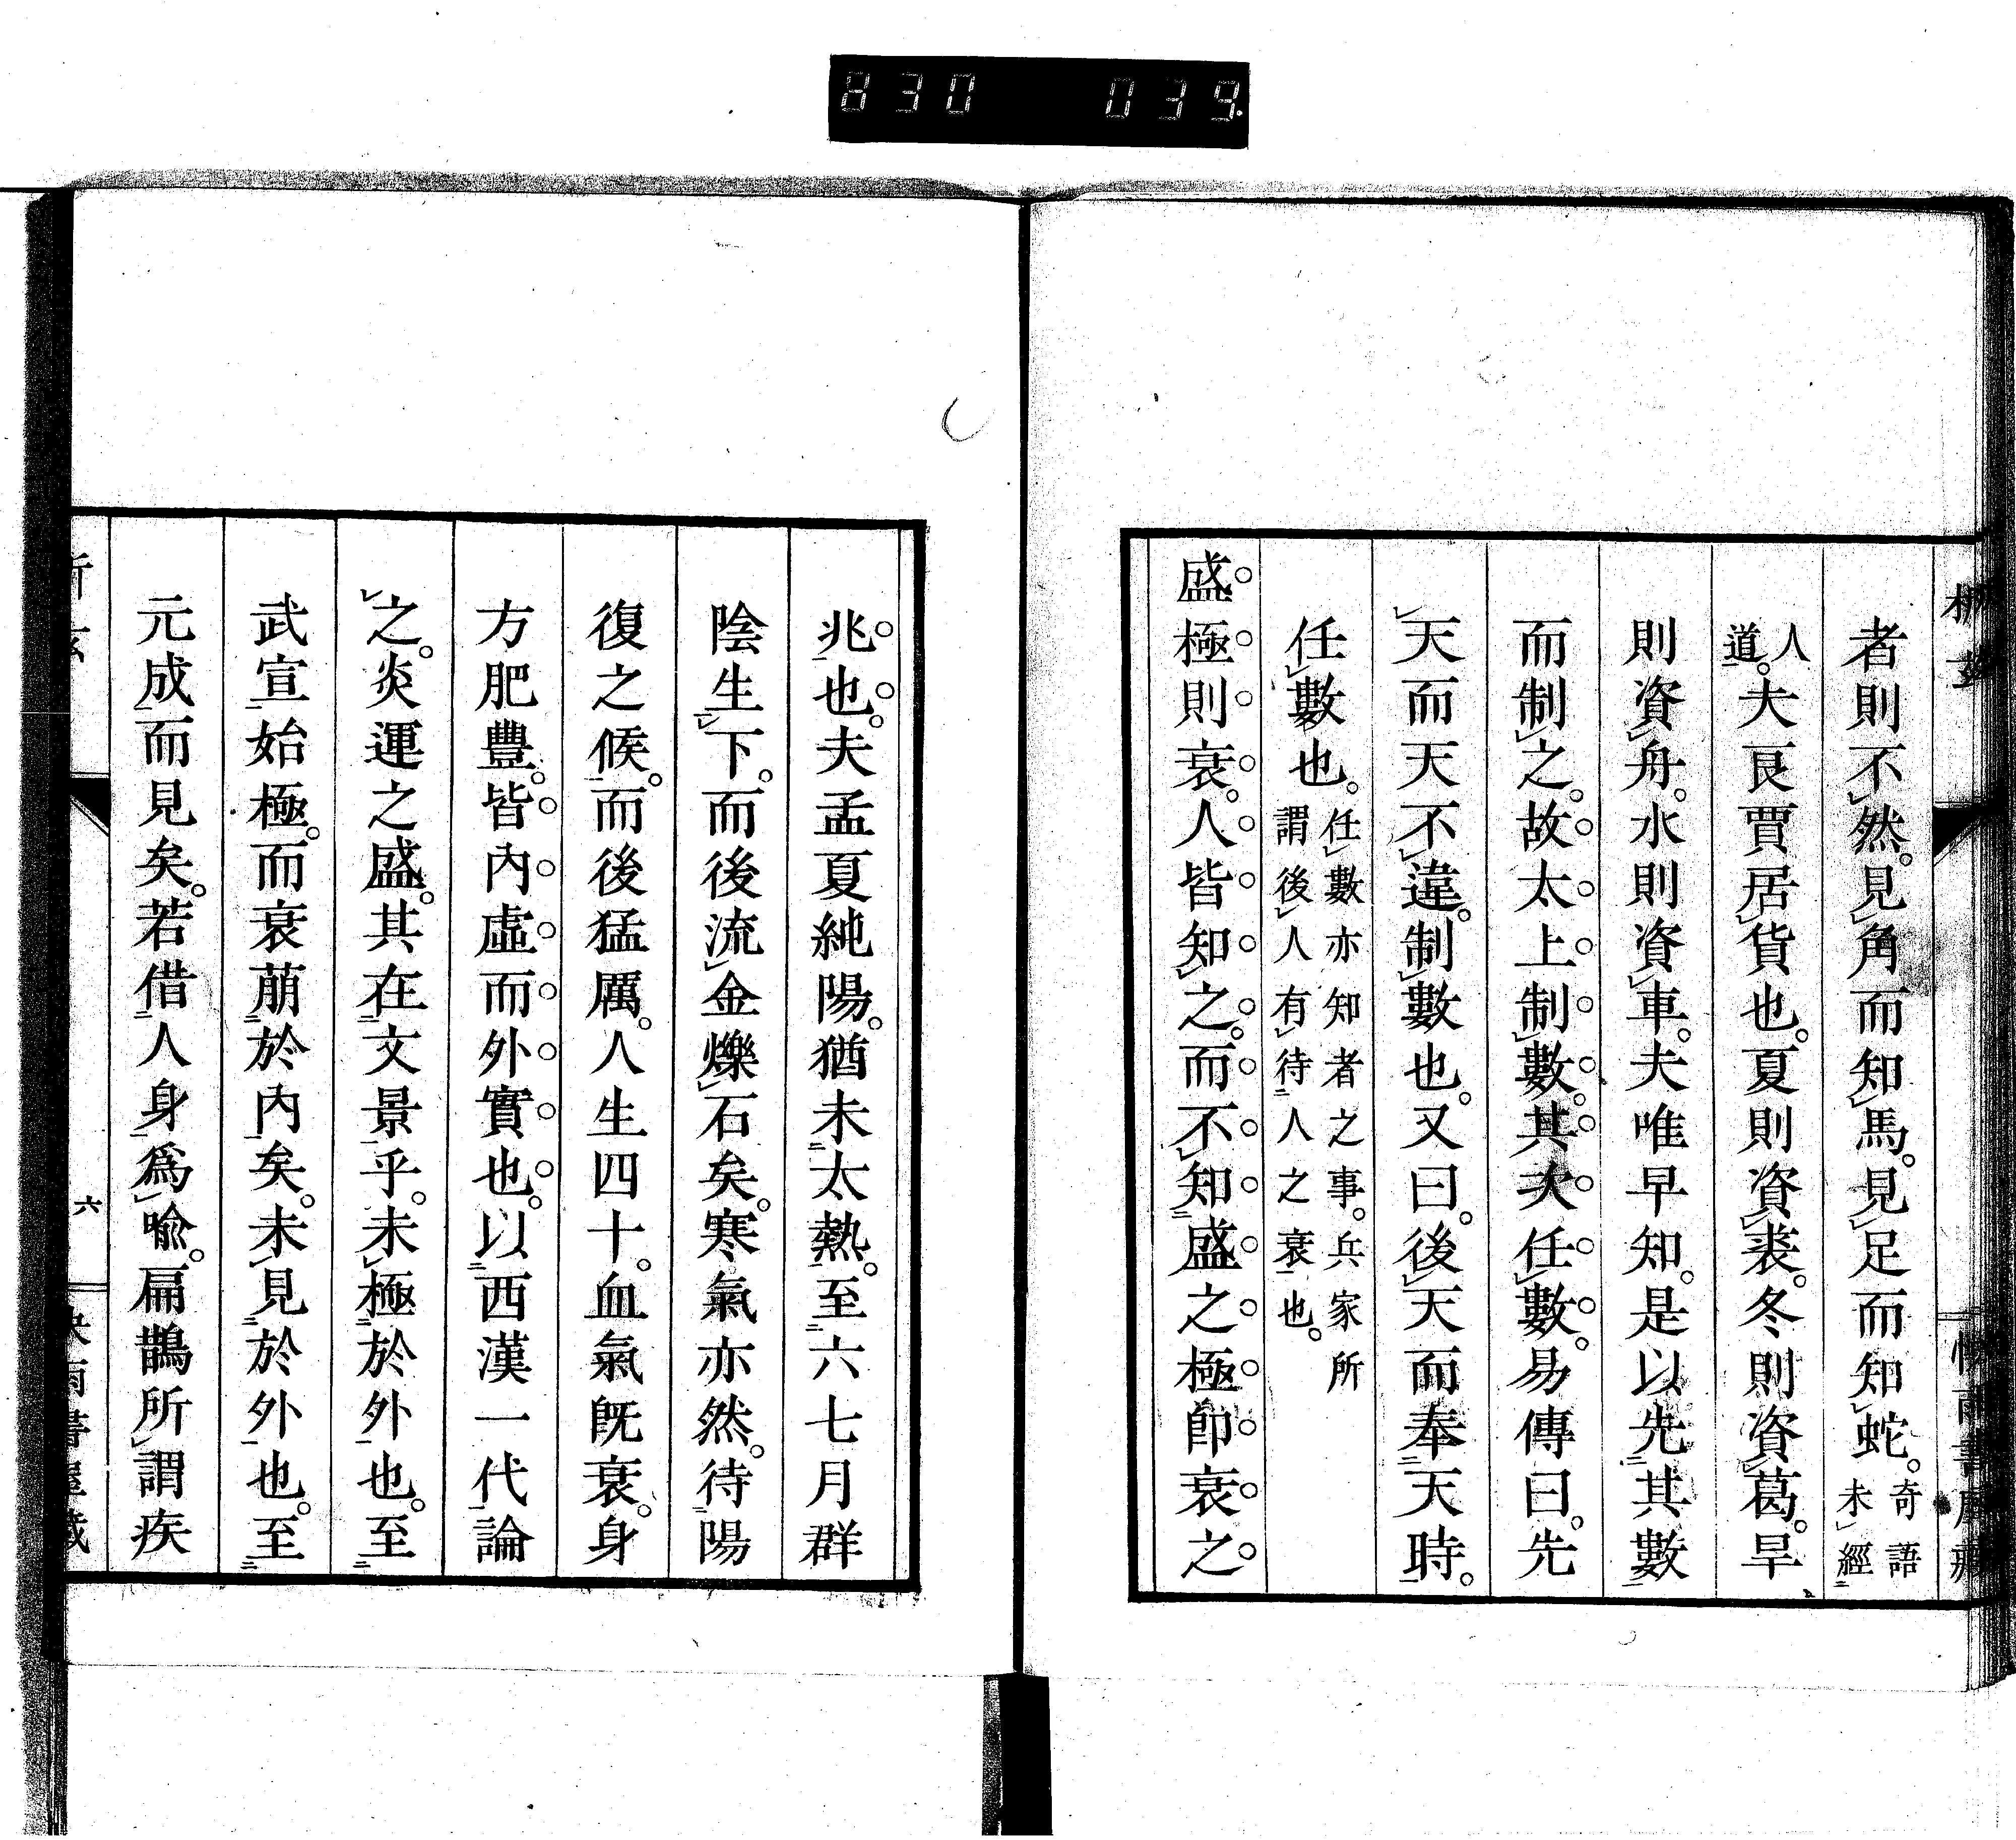 830 039
者則不然。見角而知馬。見足而知蛇。奇語未經
人道。夫良賈居貨也。夏則資裘。冬則資葛。旱
則資舟。水則資車。夫唯早知。是以先其數
而制之。故太上制數。其次任數。易傳曰。先
天而天不違。制數也。又曰。後天而奉天時。
任數也。任數亦知者之事。兵家所謂後人有待人之衰也。
盛極則衰。人皆知之。而不知盛之極卽衰之
兆也。夫孟夏純陽。猶未太熱。至六七月群
陰生下。而後流金爍石矣。寒氣亦然。待陽
復之候。而後猛厲。人生四十。血氣旣衰。身
方肥豐。皆內虛而外實也。以西漢一代論
之。炎運之盛。其在文景乎。未極於外也。至
武宣始極。而衰萠於內矣。未見於外也。至
元成而見矣。若借人身爲喩。扁鵲所謂疾
六